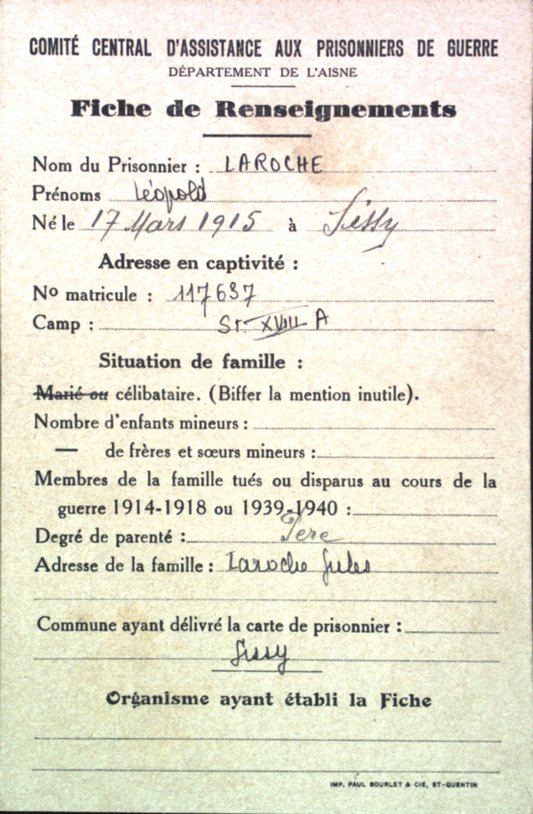 COMITÉ CENTRAL D'ASSISTANCE AUX PRISONNIERS DE GUERRE
DÉPARTEMENT DE L'AISNE
Fiche de Renseignements
Nom du Prisonnier : LAROCHE
Prénoms Léopold
Né le 17 Mars 1915 à Sissy
Adresse en captivité :
No matricule : 117637
Camp : ST. XVIII A
Situation de famille :
Marié ou célibataire. (Biffer la mention inutile).
Nombre d'enfants mineurs :
— de frères et sœurs mineurs :
Membres de la famille tués ou disparus au cours de la
guerre 1914-1918 ou 1939-1940 :
Degré de parenté : Père
Adresse de la famille : Laroche Jules
Commune ayant délivré la carte de prisonnier :
Sissy
Organisme ayant établi la Fiche
IMP. PAUL BOURLET & CIE, ST-QUENTIN